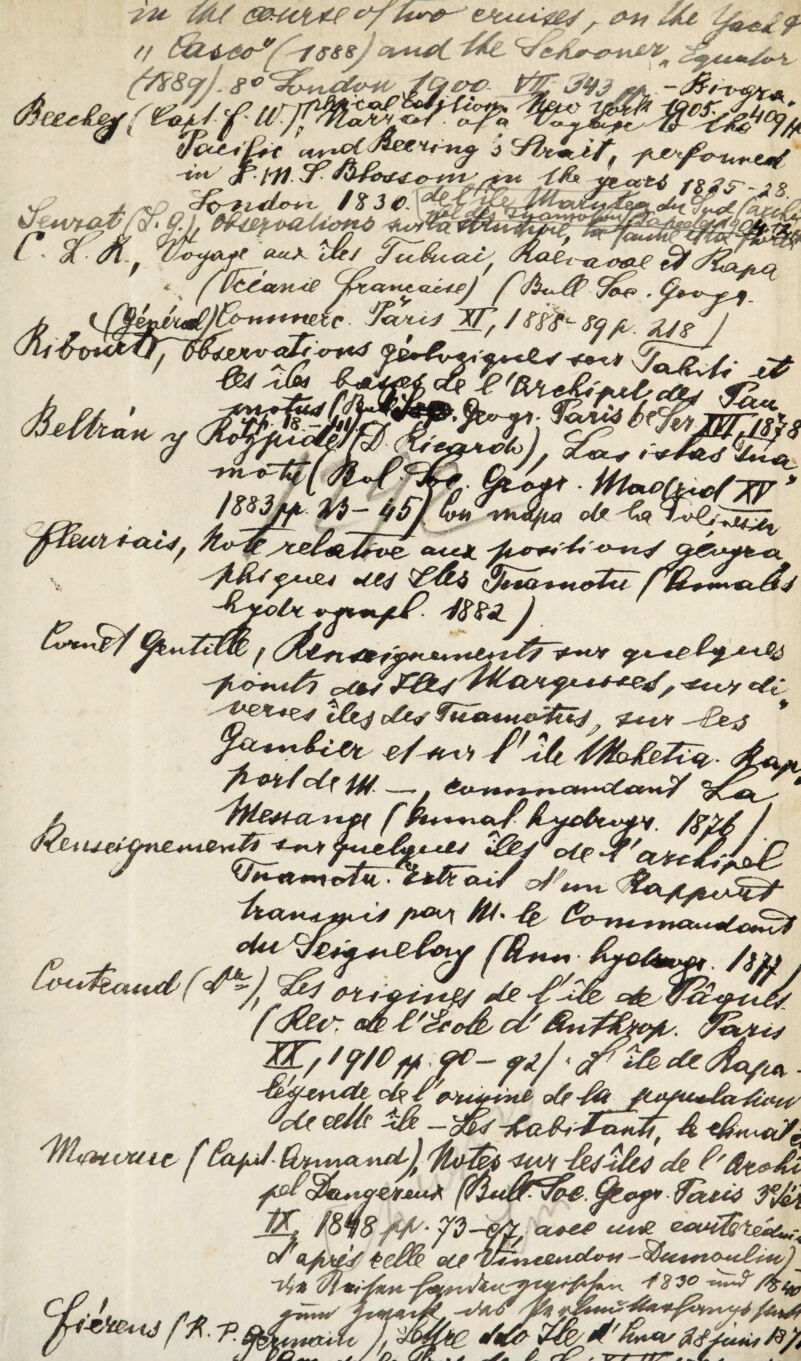 in the course of two cruises, on the Yacht
"Casco" (1888) and the Schooner "Equator
(1889). 8° London 1900. VII, 343 pp. - Biogra-
phical Edition New York 1905. 409 pp
Beechey (Capt. f. W.), Narrat. of a Voyage to the
Pacific and Beering's Strait, performed
in H.M.S. Blossom in the years 1825-28.
London 1830.
de l'île Marutea du Sud (archi
pel des Tuamotu)
Seurat (L. G.), Observations sur la structure, la faune et la flore
C. L. R., Voyage aux îles Tubuai, Raivavae et Rapa
(Océanie française) (Bull. Soc. Geogr.
Commerc. Paris XI, 1888-89 p. 218)
Ribourt (Général), Observations géologiques sur Tahiti et
les îles basses de l'Archipel des Pau
motus (Bull. Soc. Geogr. Paris 6e Ser XVI, 1878
Beltrán y Rózpide (D. Ricardo), Las islas Tua
motu (Bol. Soc. Geogr. Madrid XV
1883 pp. 23-45) Con mapa de la Polinesia
Fleuriais, Note relative aux positions géogra
phiques des Iles Tuamotu (Annales
hydrograph. 1882)
Cornet Gentille, Renseignements sur quelques
points des Iles Marquises, sur di
verses îles des Tuamotus, sur les
Gambier et sur l'île Mehetia. Rap
port de M. —, commandant La
Messange (Annal. hydrogr. 1876)
Renseignements sur quelques îles de l'archipel
Tuamotu. Extrait d'un Rapport
transmis par M. le Commandant
du Seignelay (Ann. hydrogr. 1877)
Couteaud (Dr), Les origines de l'île de Pâques
(Rev. de l'École d'Anthrop. Paris
XX, 1910 pp. 90-92). L'île de Rapa -
légende de l'origine de la population
de cette île - Les habitants, le climat
(Capit. Armand), Notes sur les îles de l'Archi
pel Dangereux (Bull. Soc. Geogr. Paris 3e Sér
IX, 1848 pp. 73-87, avec une carte réduite
d'après celle de Vincendon-Dumoulin)
Die Reisen fanden zwischen 1830 und 1840
zum Zweck des Perlmutterfangs statt
Fiérens (R. P. Germain), Lettre de Ile d'Anaa 28 juin 187